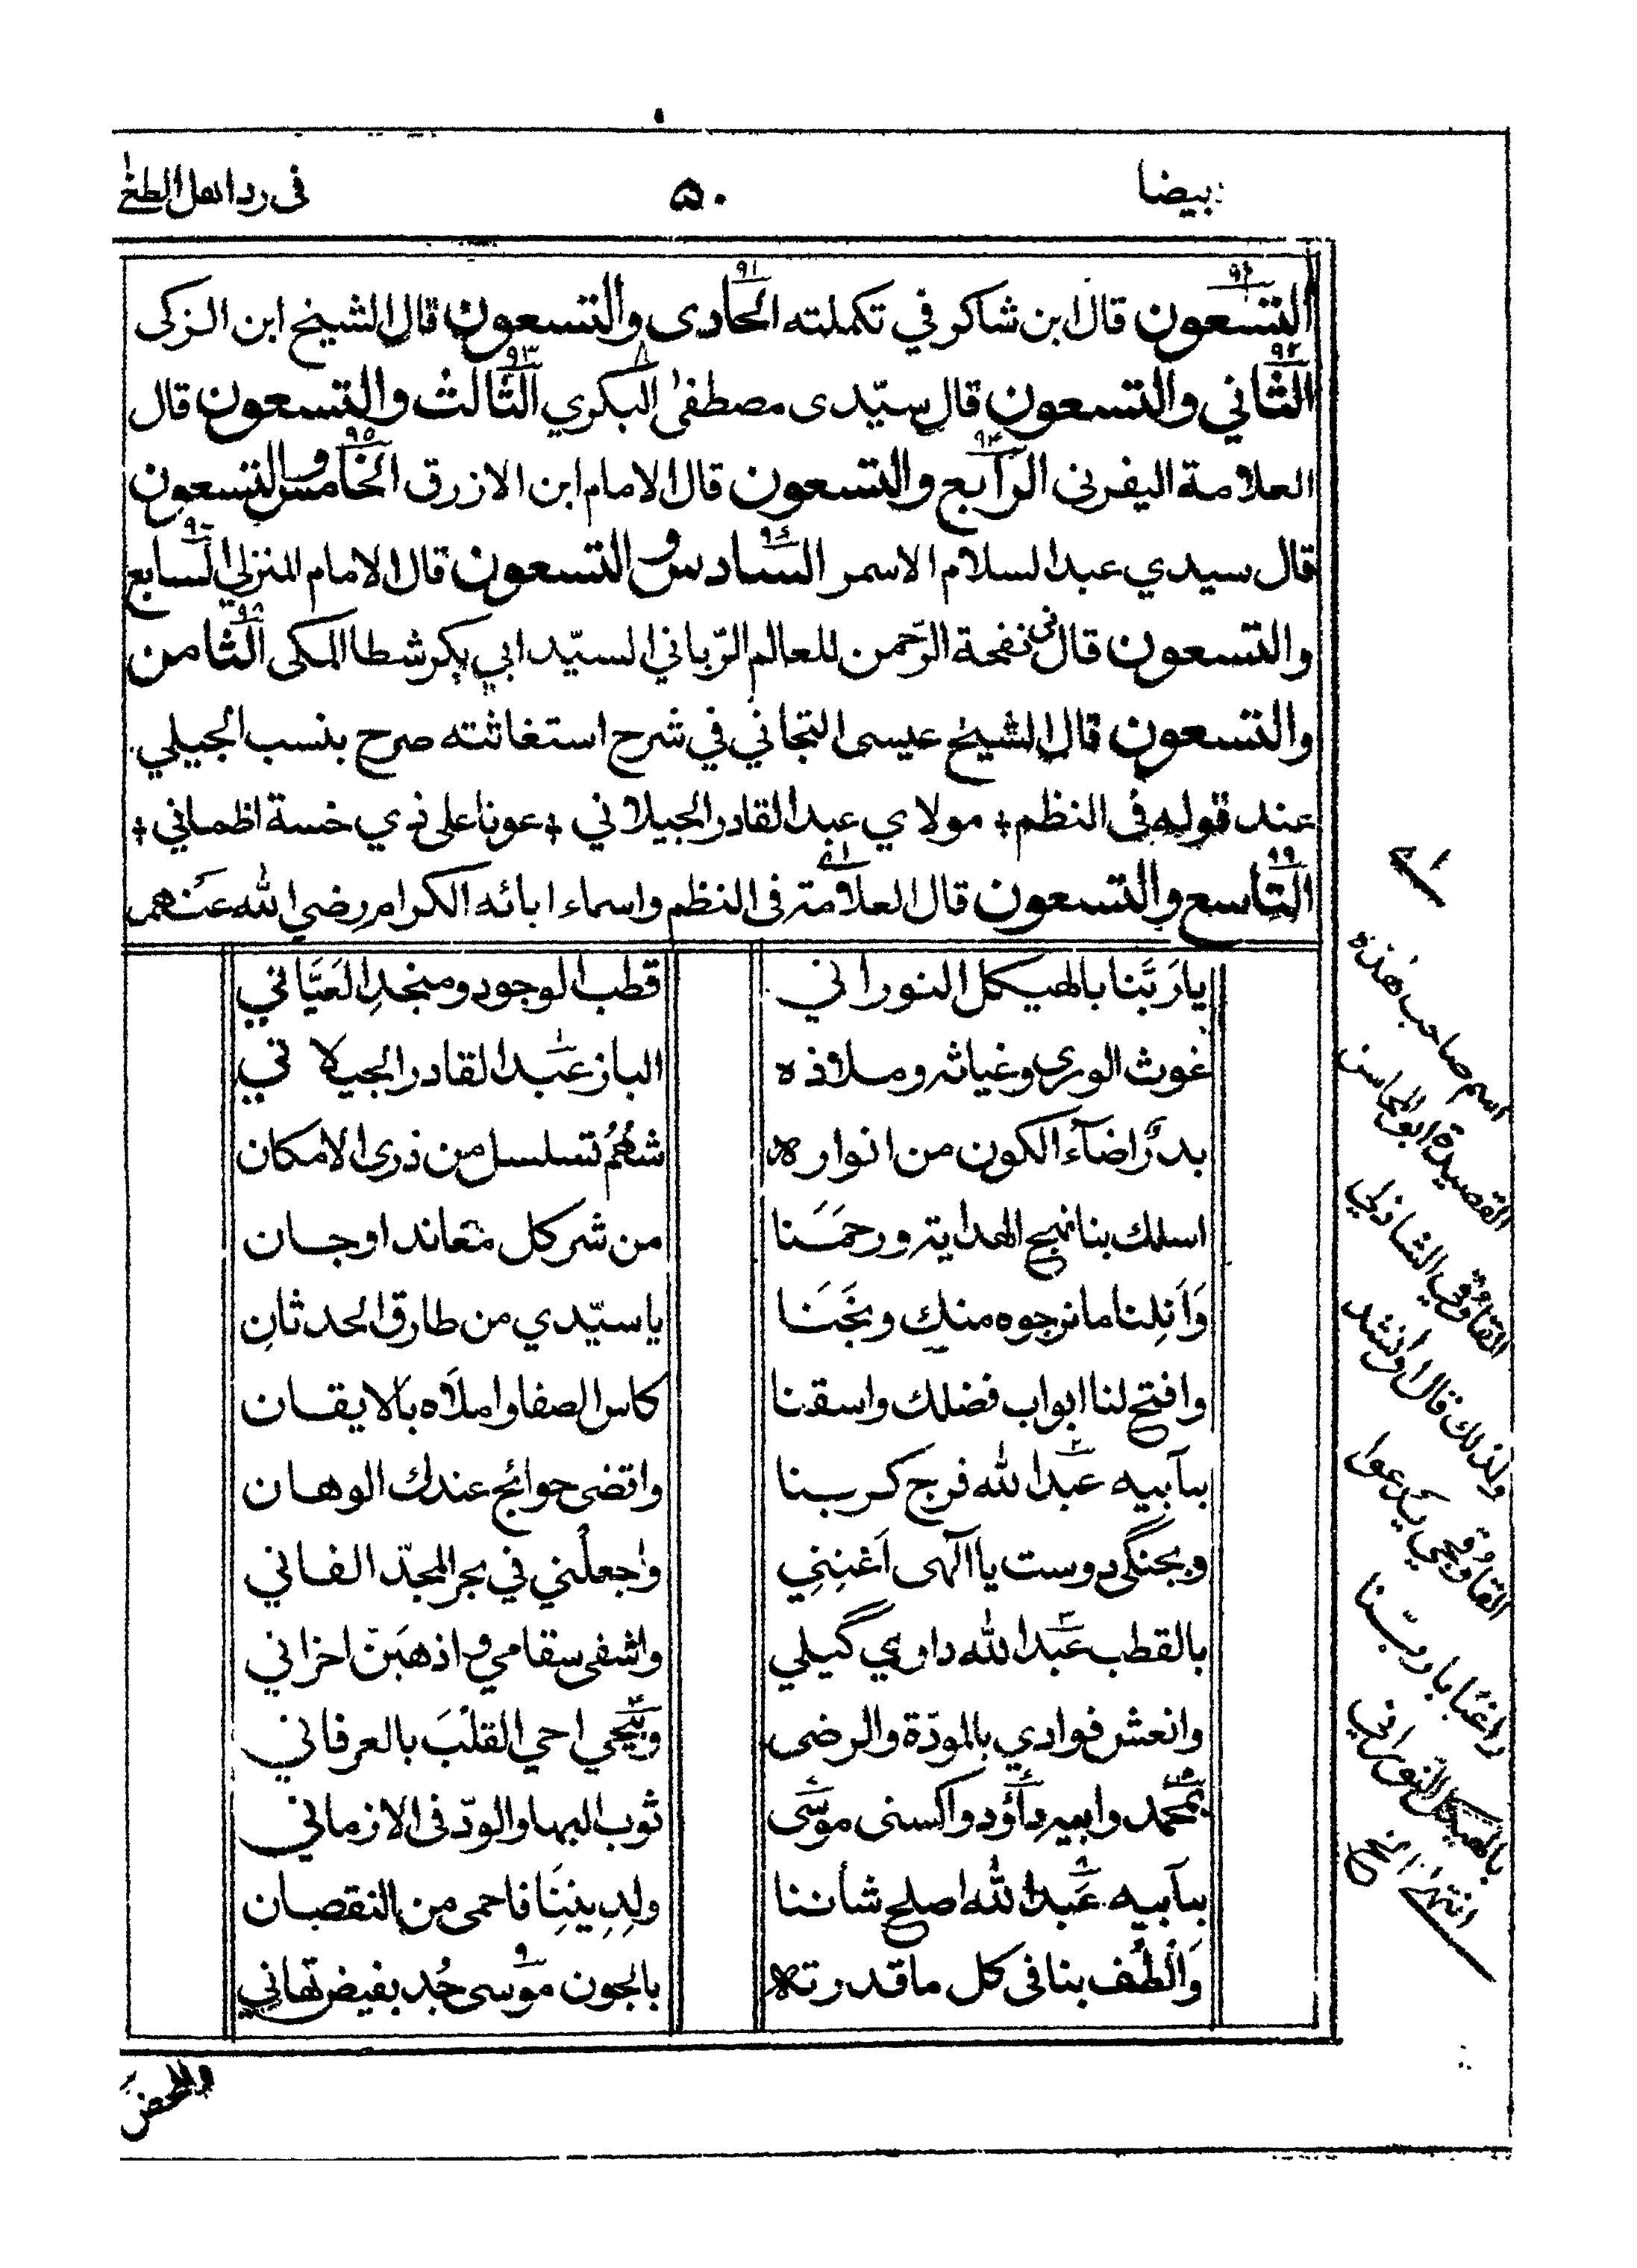 بيضا
٥٠
في رد اهل الطغ
٩٠
٩١
التسعون قال ابن شاكر في تكملته الحادى والتسعون قال الشيخ ابن الزكى
٩٢
٩٣
الثاني والتسعون قال سيّدى مصطفى البكري الثالث والتسعون قال
٩٤
٩٥
العلامة اليفرنى الرابع والتسعون قال الامام ابن الازرق الخامس والتسعون
قال سيدي عبد السلام الاسمر السادس والتسعون قال الامام المنزلي السابع
والتسعون قال فى نفحة الرّحمن للعالم الرّباني السيّد ابي بكر شطا المكى الثامن
والتسعون قال الشيخ عيسى التجاني في شرح استغاثته صرح بنسب الجيلي
عند قوله فى النظم مولاي عبد القادر الجيلاني عونا على ذي خسة اظماني
٩٩
التاسع والتسعون قال العلامة فى النظم واسماء ابائه الكرام رضي الله عنهم
يا رَبَّنا بالهيكل النوراني
قطب الوجود ومنجدِ العَيَّاني
غوث الورى وغياثه وملاذه
الباز عبد القادر الجيلاني
بدرٌ اضآء الكون من انواره
شهُمُ تسلسل من ذرى الامكان
اسلك بنا نهج الهداية ورحمَنا
من شر كل معاند او جان
وَاَنِلنا ما نرجوه منك ونجَنا
يا سيّدي من طارق الحدثانِ
وافتح لنا ابواب فضلك واسقنا
كاس الصفا واملأه بالايقان
٢
بابيه عبد الله فرج كربنا
واقضى حوائج عندك الوهان
وبجنگى دوست يا الهى اَغنِنِي
واجعلْني في بحر المجدّ الفاني
٣
بالقطب عبد الله داوي گيلي
واشفى سقامي واذهبَنّ احزاني
وانعش فوادي بالمودّة والرضى
٤
وبيحي احي القلْبَ بالعرفاني
بمحمد وابيه داؤد واكسنى موسى
ثوب البها والودّ فى الازماني
بابيه عبد الله اصلح شأننا
ولِدِيننَا فاحمى من النقصان
وَالطُف بنا فى كل ما قدرته
٩
بالجون موسى جُد بفيض تهاني
اسم صاحب هذه
القصيدة ابو المحاسن
القاوقي الشاذلي
ولذلك قال او انشد
القاوقجي يدعوا
ربّنا
بالهيكل النوراني
انتهى
والمحض